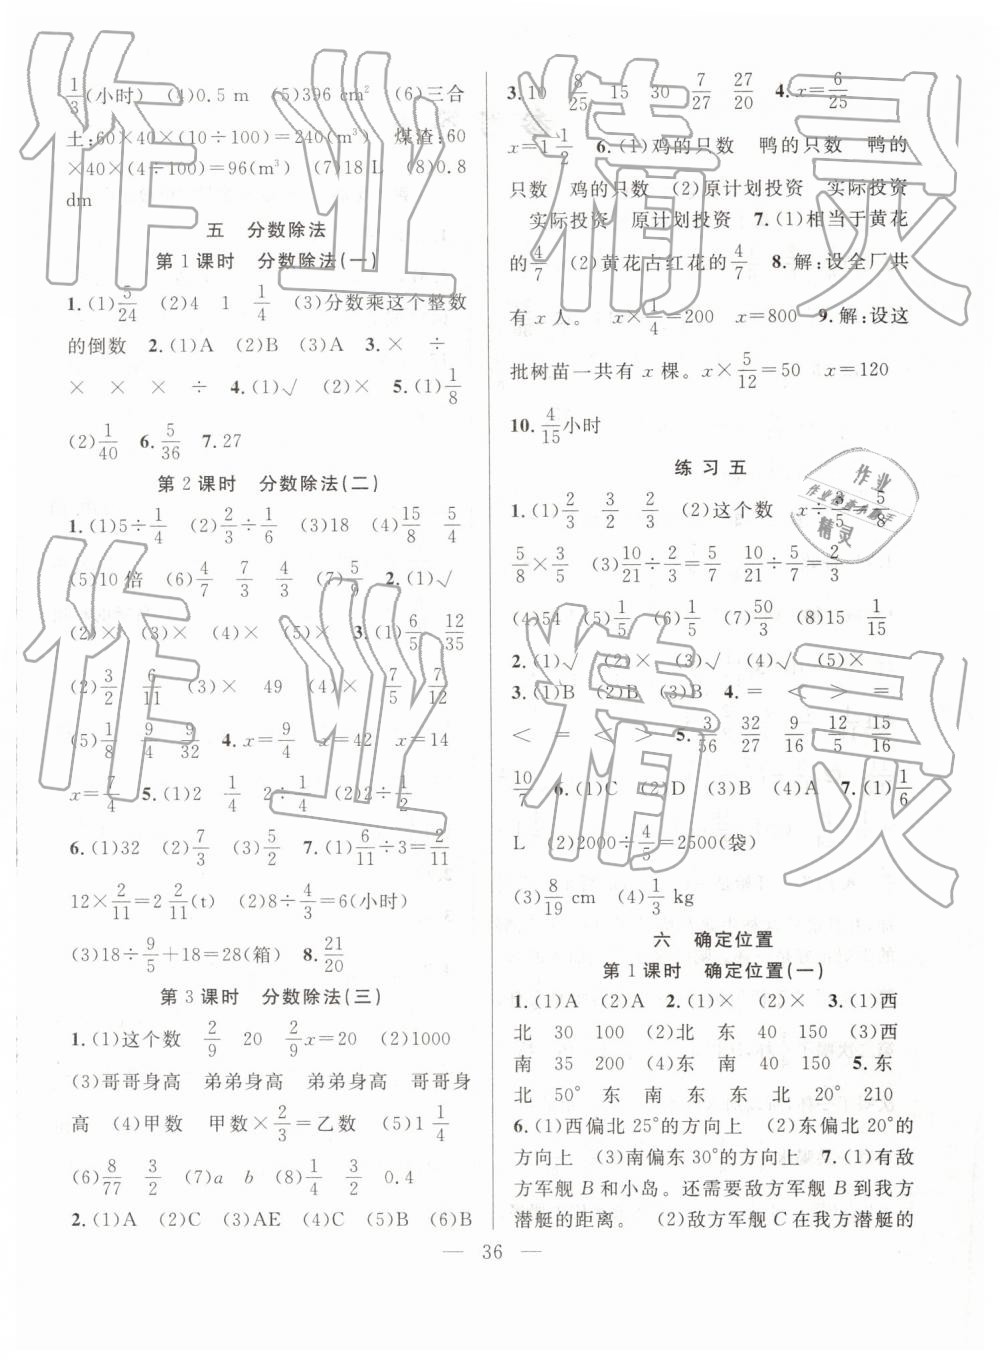 1/3(小时) (4)0.5 m (5)396 cm² (6)三合
土:60×40×(10÷100)=240(m³) 煤渣:60
×40×(4÷100)=96(m³) (7)18 L (8)0.8
dm
五 分数除法
第1课时 分数除法(一)
1.(1)5/24 (2)4 1 1/4 (3)分数乘这个整数
的倒数 2.(1)A (2)B (3)A 3.× ÷
× × × ÷ 4.(1)√ (2)× 5.(1)1/8
(2)1/40 6.5/36 7.27
第2课时 分数除法(二)
1.(1)5÷1/4 (2)2/3÷1/6 (3)18 (4)15/8 5/4
(5)10倍 (6)4/7 7/3 4/3 (7)5/9 2.(1)√
(2)× (3)× (4)× (5)× 3.(1)6/5 12/35
(2)3/2 6/11 (3)× 49 (4)× 7/5 7/12
(5)1/8 9/4 9/32 4.x=9/4 x=42 x=14
x=7/4 5.(1)2 1/4 2÷1/4 (2)2÷1/2
6.(1)32 (2)7/3 (3)5/2 7.(1)6/11÷3=2/11
12×2/11=2 2/11(t) (2)8÷4/3=6(小时)
(3)18÷9/5+18=28(箱) 8.21/20
第3课时 分数除法(三)
1.(1)这个数 2/9 20 2/9x=20 (2)1000
(3)哥哥身高 弟弟身高 弟弟身高 哥哥身
高 (4)甲数 甲数×2/3=乙数 (5)1 1/4
(6)8/77 3/2 (7)a b (8)1/4 3/2 0.4
2.(1)A (2)C (3)AE (4)C (5)B (6)B
3.10 8/25 15 30 7/27 27/20 4.x=6/25
x=1 1/2 6.(1)鸡的只数 鸭的只数 鸭的
只数 鸡的只数 (2)原计划投资 实际投资
实际投资 原计划投资 7.(1)相当于黄花
的4/7 (2)黄花占红花的4/7 8.解:设全厂共
有x人。 x×1/4=200 x=800 9.解:设这
批树苗一共有x棵。x×5/12=50 x=120
10.4/15小时
练习五
1.(1)2/3 3/2 2/3 (2)这个数 x÷3/5 5/8
5/8×3/5 (3)10/21÷2/3=5/7 10/21÷5/7=2/3
(4)54 (5)1/5 (6)1/5 (7)50/3 (8)15 1/15
2.(1)√ (2)× (3)√ (4)√ (5)×
3.(1)B (2)B (3)B 4.= < > =
< = < > 5.3/56 32/27 9/16 12/5 15/16
10/7 6.(1)C (2)D (3)B (4)A 7.(1)1/6
L (2)2000÷4/5=2500(袋)
(3)8/19 cm (4)1/3 kg
六 确定位置
第1课时 确定位置(一)
1.(1)A (2)A 2.(1)× (2)× 3.(1)西
北 30 100 (2)北 东 40 150 (3)西
南 35 200 (4)东 南 40 150 5.东
北 50° 东 南 东 东 北 20° 210
6.(1)西偏北25°的方向上 (2)东偏北20°的
方向上 (3)南偏东30°的方向上 7.(1)有敌
方军舰B和小岛。还需要敌方军舰B到我方
潜艇的距离。 (2)敌方军舰C在我方潜艇的
— 36 —
作业精灵
作业精灵
作业
精灵